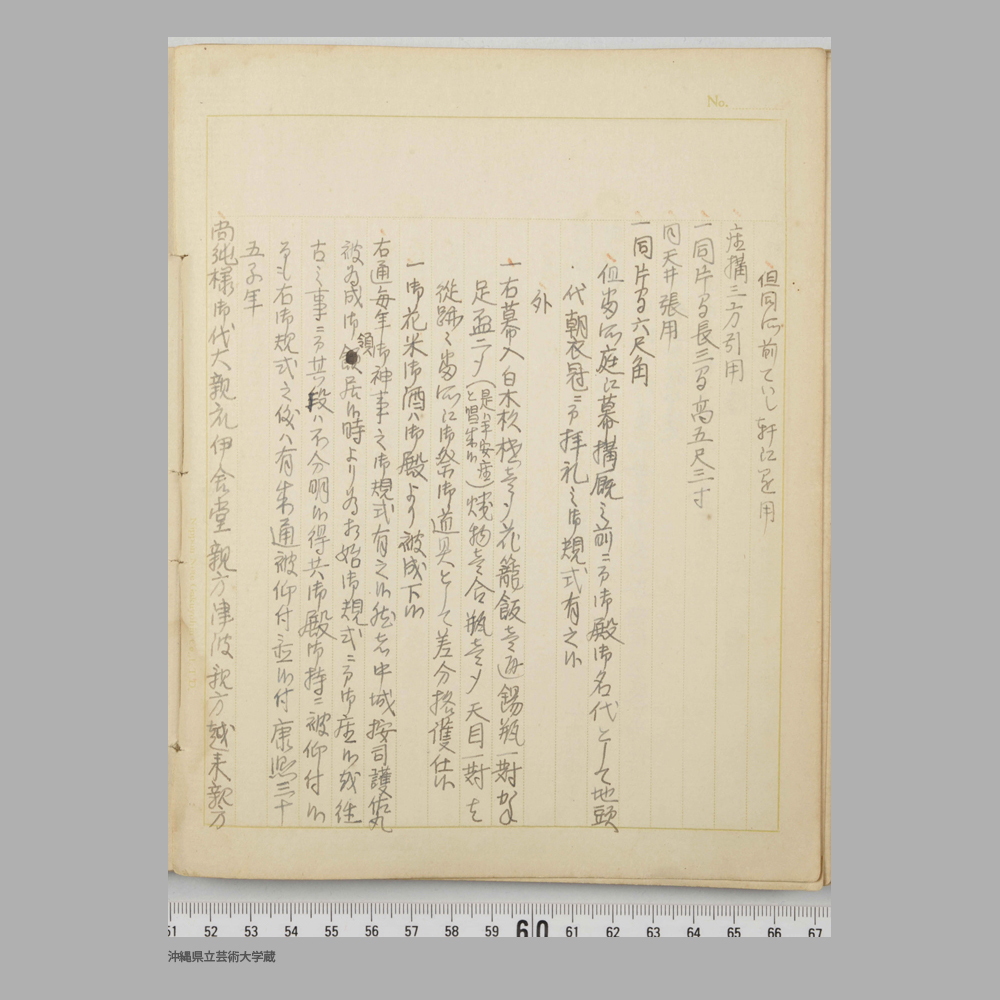 No.
但同所前ていし軒江まて用
座構三方引用
一同片ヨ長三ヨ高五尺三寸
同天井張用
一同片ヨ六尺角
但当所庭江幕構厩之前ニ而御殿御名代として地頭
代朝衣冠ニ而拝礼之御規式有之候
外
一右幕入白木杦櫃壱ツ花籠飯壱通錫瓶一対
足盃二ツ(是ハ平安座と唱来候)焼物壱合瓶壱ツ天目一対
従跡々当所江御祭御道具として差分格護仕候
一御花米御酒ハ御殿より被成下候
右通毎年御神事之御規式有之候然者中城按司護佐丸
被為成御領居候時より為相始御規式ニ而御座候哉往
古之事ニ而其段ハ不分明候得共御殿御持ニ被仰付候
而も右御規式之儀ハ有来通被仰付置候付康熙三十
五子年
尚純様御代大親礼伊舎堂親方津波親方越来親方
51 52 53 54 55 56 57 58 59 60 61 62 63 64 65 66 67
沖縄県立芸術大学蔵